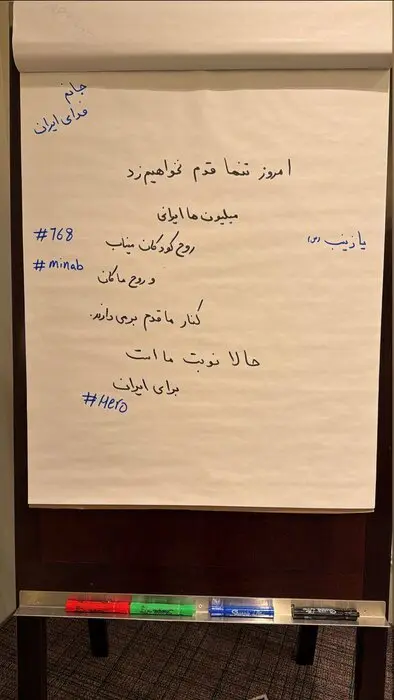 جانم
فدای ایران
امروز تنها قدم نخواهیم زد
میلیون ها ایرانی
روح کودکان میناب
#768
یا زینب (س)
#minab
و روح ماکان
کنار ما قدم برمی دارند.
حالا نوبت ما است
برای ایران
#Hero